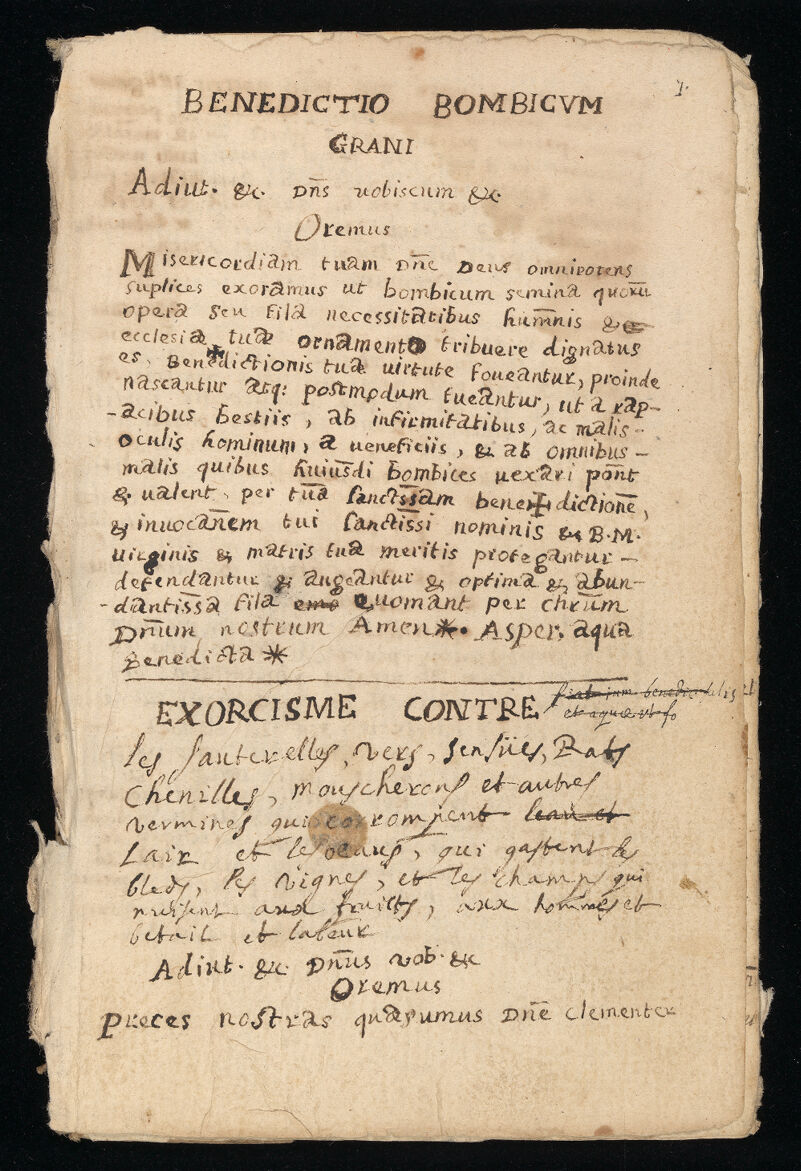 1.
BENEDICTIO BOMBICVM
GRANI
Adiut. &c. Dn̄s vobiscum &c.
Oremus
Misericordiam tuam Dn̄e Deus omnipotens
suplices exoramus ut bombicum semina quorū
opera seu fila necessitatibus hum̄nis &
ecclesiæ tuæ ornamento tribuere dignatus
es, Bene✠dictionis tuæ virtute foveantur, proinde
nascantur atq: postmodum tueantur, ut a rap-
-acibus bestiis, ab infirmitatibus, ac malis-
oculis hominum, a veneficiis, & ab omnibus-
malis quibus huius̄di bombices vexari pōnt
& valent, per tūa sanctis̄sam bene✠dictionē,
& invocan̄em tui sanctis̄si nominis & B.M.
virginis & matris tuæ meritis protegantur-
defendantur & augeantur & optima & abun-
-dantis̄sa fila evomant per chrūm
Dn̄um nostrum Amen✳. Asper. aqua
Benedicta ✳
EXORCISME CONTRE
les sauterelles, vers, sensües, Rats
Chenilles, mouscherons et autres
vermines qui corrompent leau et
Lair et les eaus, qui gastent les
bleds, les vignes, et les champs qui
nuisent aux fruicts, aux hommes et
betail et labeur
Adiut. &c. Dn̄us vob. &c
Oremus
Preces nostras quæsumus Dn̄e clementer